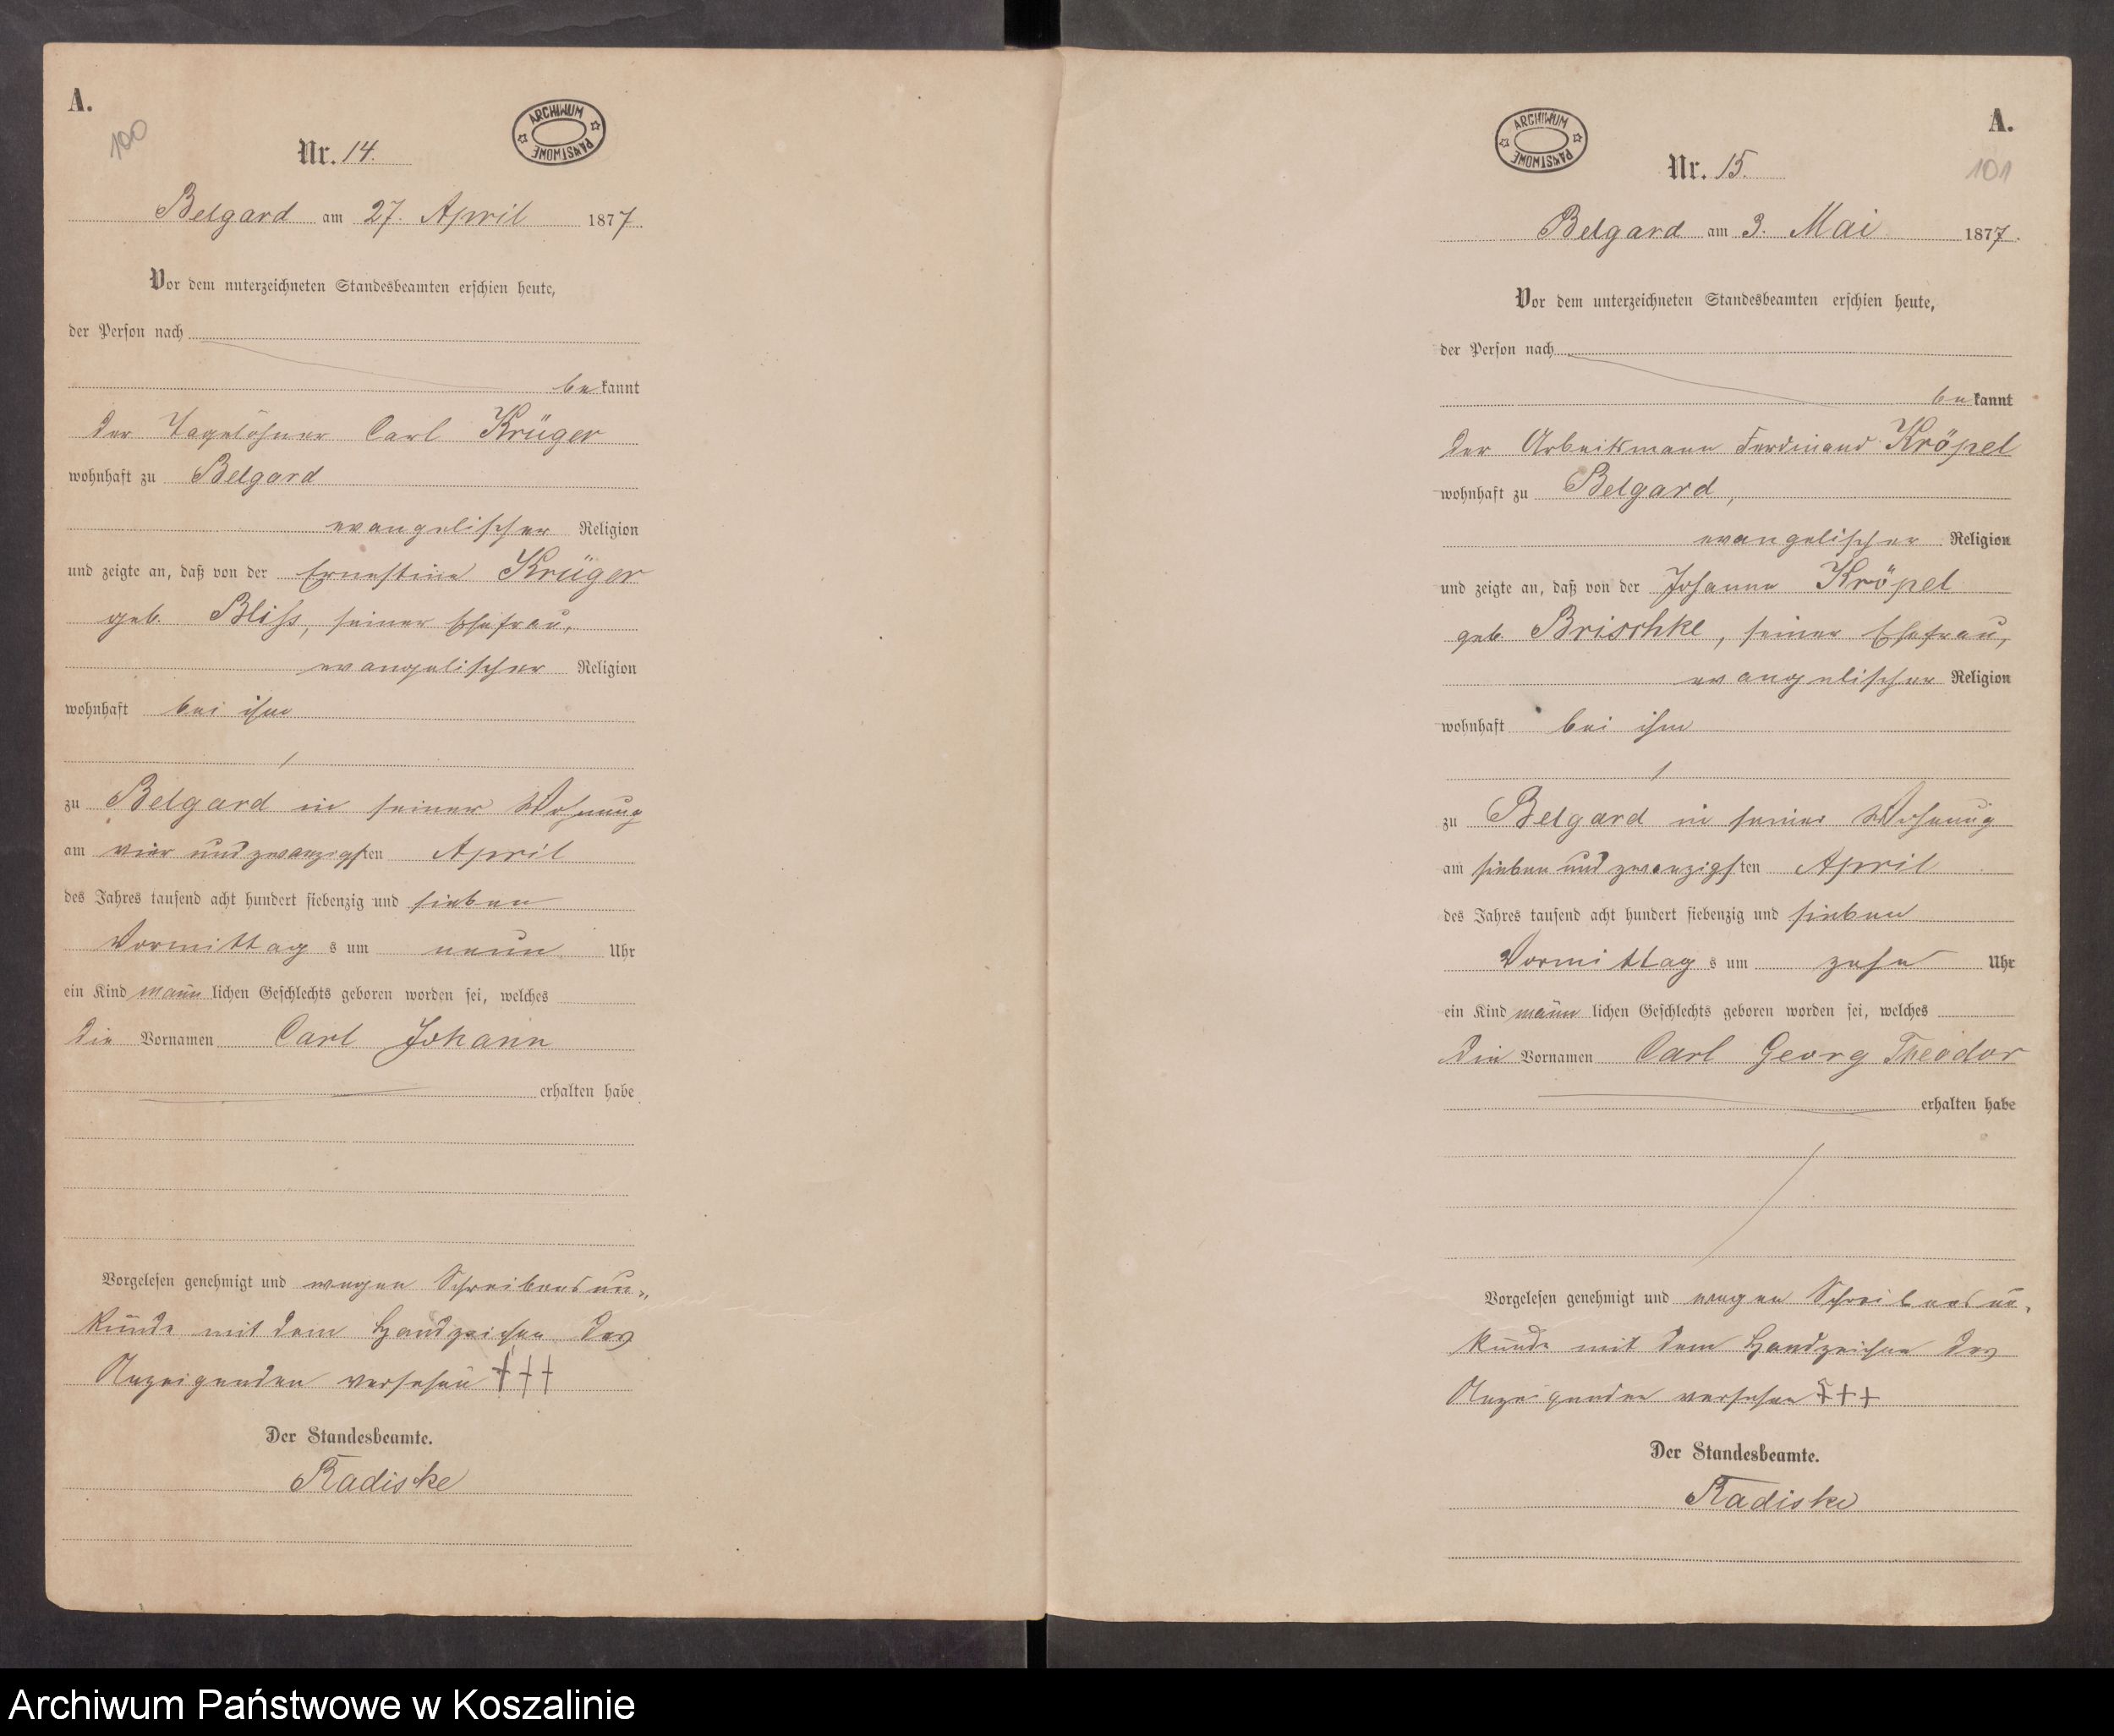 A.
100
ARCHIWUM PAŃSTWOWE
Nr. 14.
Belgard am 27. April 1877.
Vor dem unterzeichneten Standesbeamten erschien heute,
der Person nach
bekannt
der Tagelöhner Carl Krüger
wohnhaft zu Belgard
evangelischer Religion
und zeigte an, daß von der Ernestine Krüger
geb. Bliss, seiner Ehefrau,
evangelischer Religion
wohnhaft bei ihm
zu Belgard in seiner Wohnung
am vier und zwanzigsten April
des Jahres tausend acht hundert siebenzig und sieben
Vormittags um neun Uhr
ein Kind männlichen Geschlechts geboren worden sei, welches
die Vornamen Carl Johann
erhalten habe
Vorgelesen genehmigt und wegen Schreibensun-
kunde mit dem Handzeichen des
Anzeigenden versehen +++
Der Standesbeamte.
Radiske
A.
101
ARCHIWUM PAŃSTWOWE
Nr. 15.
Belgard am 3. Mai 1877.
Vor dem unterzeichneten Standesbeamten erschien heute,
der Person nach
bekannt
der Arbeitsmann Ferdinand Kröpel
wohnhaft zu Belgard,
evangelischer Religion
und zeigte an, daß von der Johanne Kröpel
geb. Brischke, seiner Ehefrau,
evangelischer Religion
wohnhaft bei ihm
zu Belgard in seiner Wohnung
am sieben und zwanzigsten April
des Jahres tausend acht hundert siebenzig und sieben
Vormittags um zehn Uhr
ein Kind männlichen Geschlechts geboren worden sei, welches
die Vornamen Carl Georg Theodor
erhalten habe
Vorgelesen genehmigt und wegen Schreibensun-
kunde mit dem Handzeichen des
Anzeigenden versehen +++
Der Standesbeamte.
Radiske
Archiwum Państwowe w Koszalinie